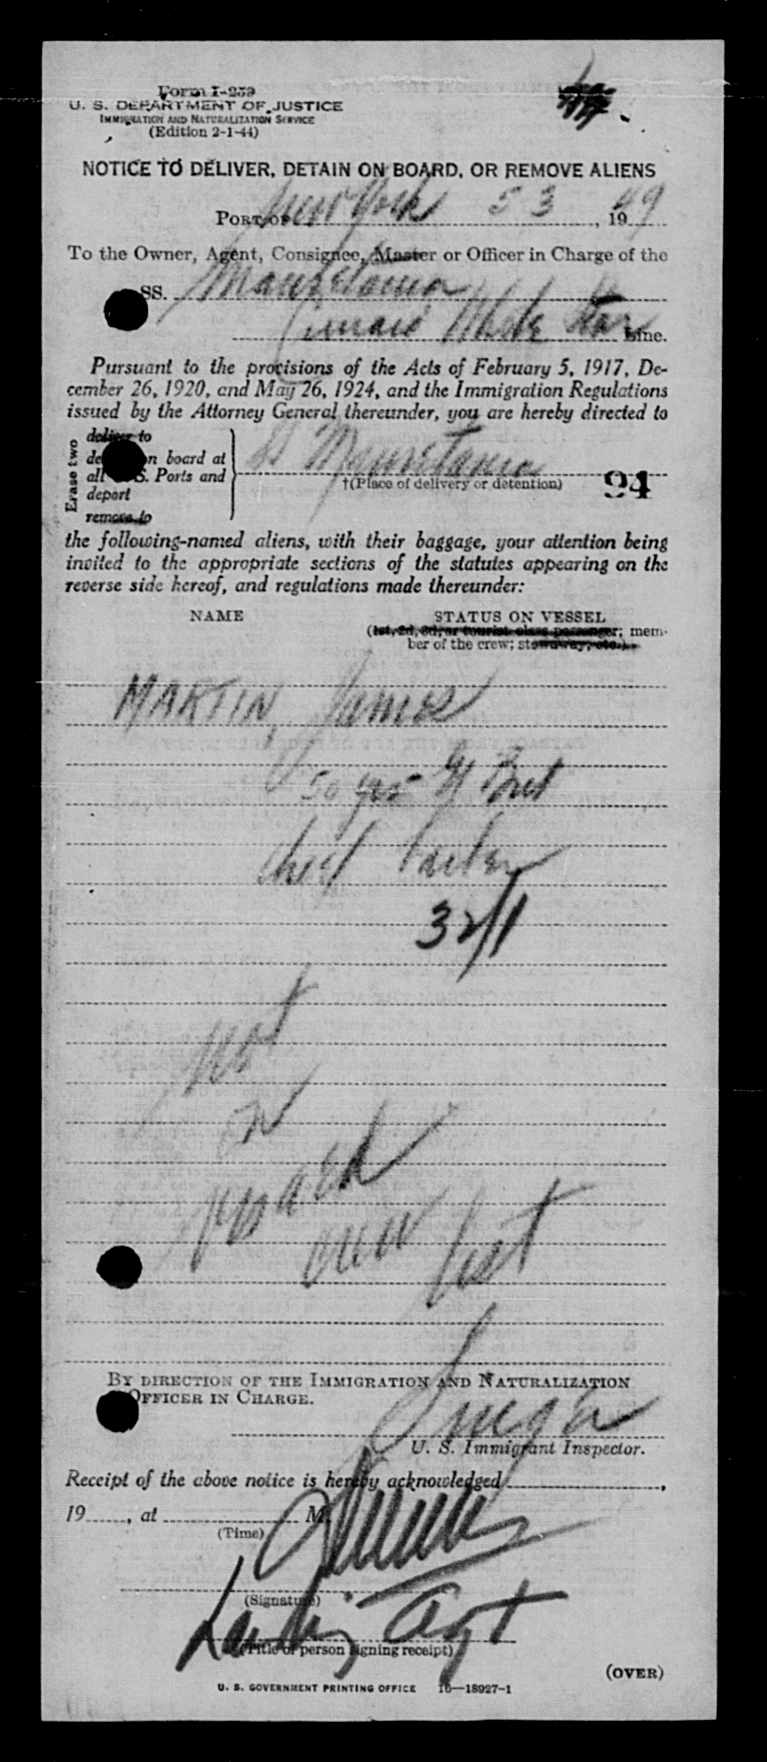 Form I-259
U. S. DEPARTMENT OF JUSTICE
IMMIGRATION AND NATURALIZATION SERVICE
(Edition 2-1-44)
NOTICE TO DELIVER, DETAIN ON BOARD, OR REMOVE ALIENS
PORT OF New York 5 3, 1949
To the Owner, Agent, Consignee, Master or Officer in Charge of the
SS. Mauretania
Cunard White Star Line.
Pursuant to the provisions of the Acts of February 5, 1917, De-
cember 26, 1920, and May 26, 1924, and the Immigration Regulations
issued by the Attorney General thereunder, you are hereby directed to
Erase two
deliver to
de n board at
all S. Ports and
deport
remove to
Mauretania
†(Place of delivery or detention)
94
the following-named aliens, with their baggage, your attention being
invited to the appropriate sections of the statutes appearing on the
reverse side hereof, and regulations made thereunder:
NAME
STATUS ON VESSEL
(1st, 2d, 3d, or tourist class passenger; mem-
ber of the crew; stowaway, etc.)
MARTIN, James
50 yrs Brit
Chief
32/1
not
on
visaed
crew list
BY DIRECTION OF THE IMMIGRATION AND NATURALIZATION
OFFICER IN CHARGE.
U. S. Immigrant Inspector.
Receipt of the above notice is hereby acknowledged
19, at M.
(Time)
(Signature)
Agt
(Title of person signing receipt)
(OVER)
U. S. GOVERNMENT PRINTING OFFICE 16—18927-1